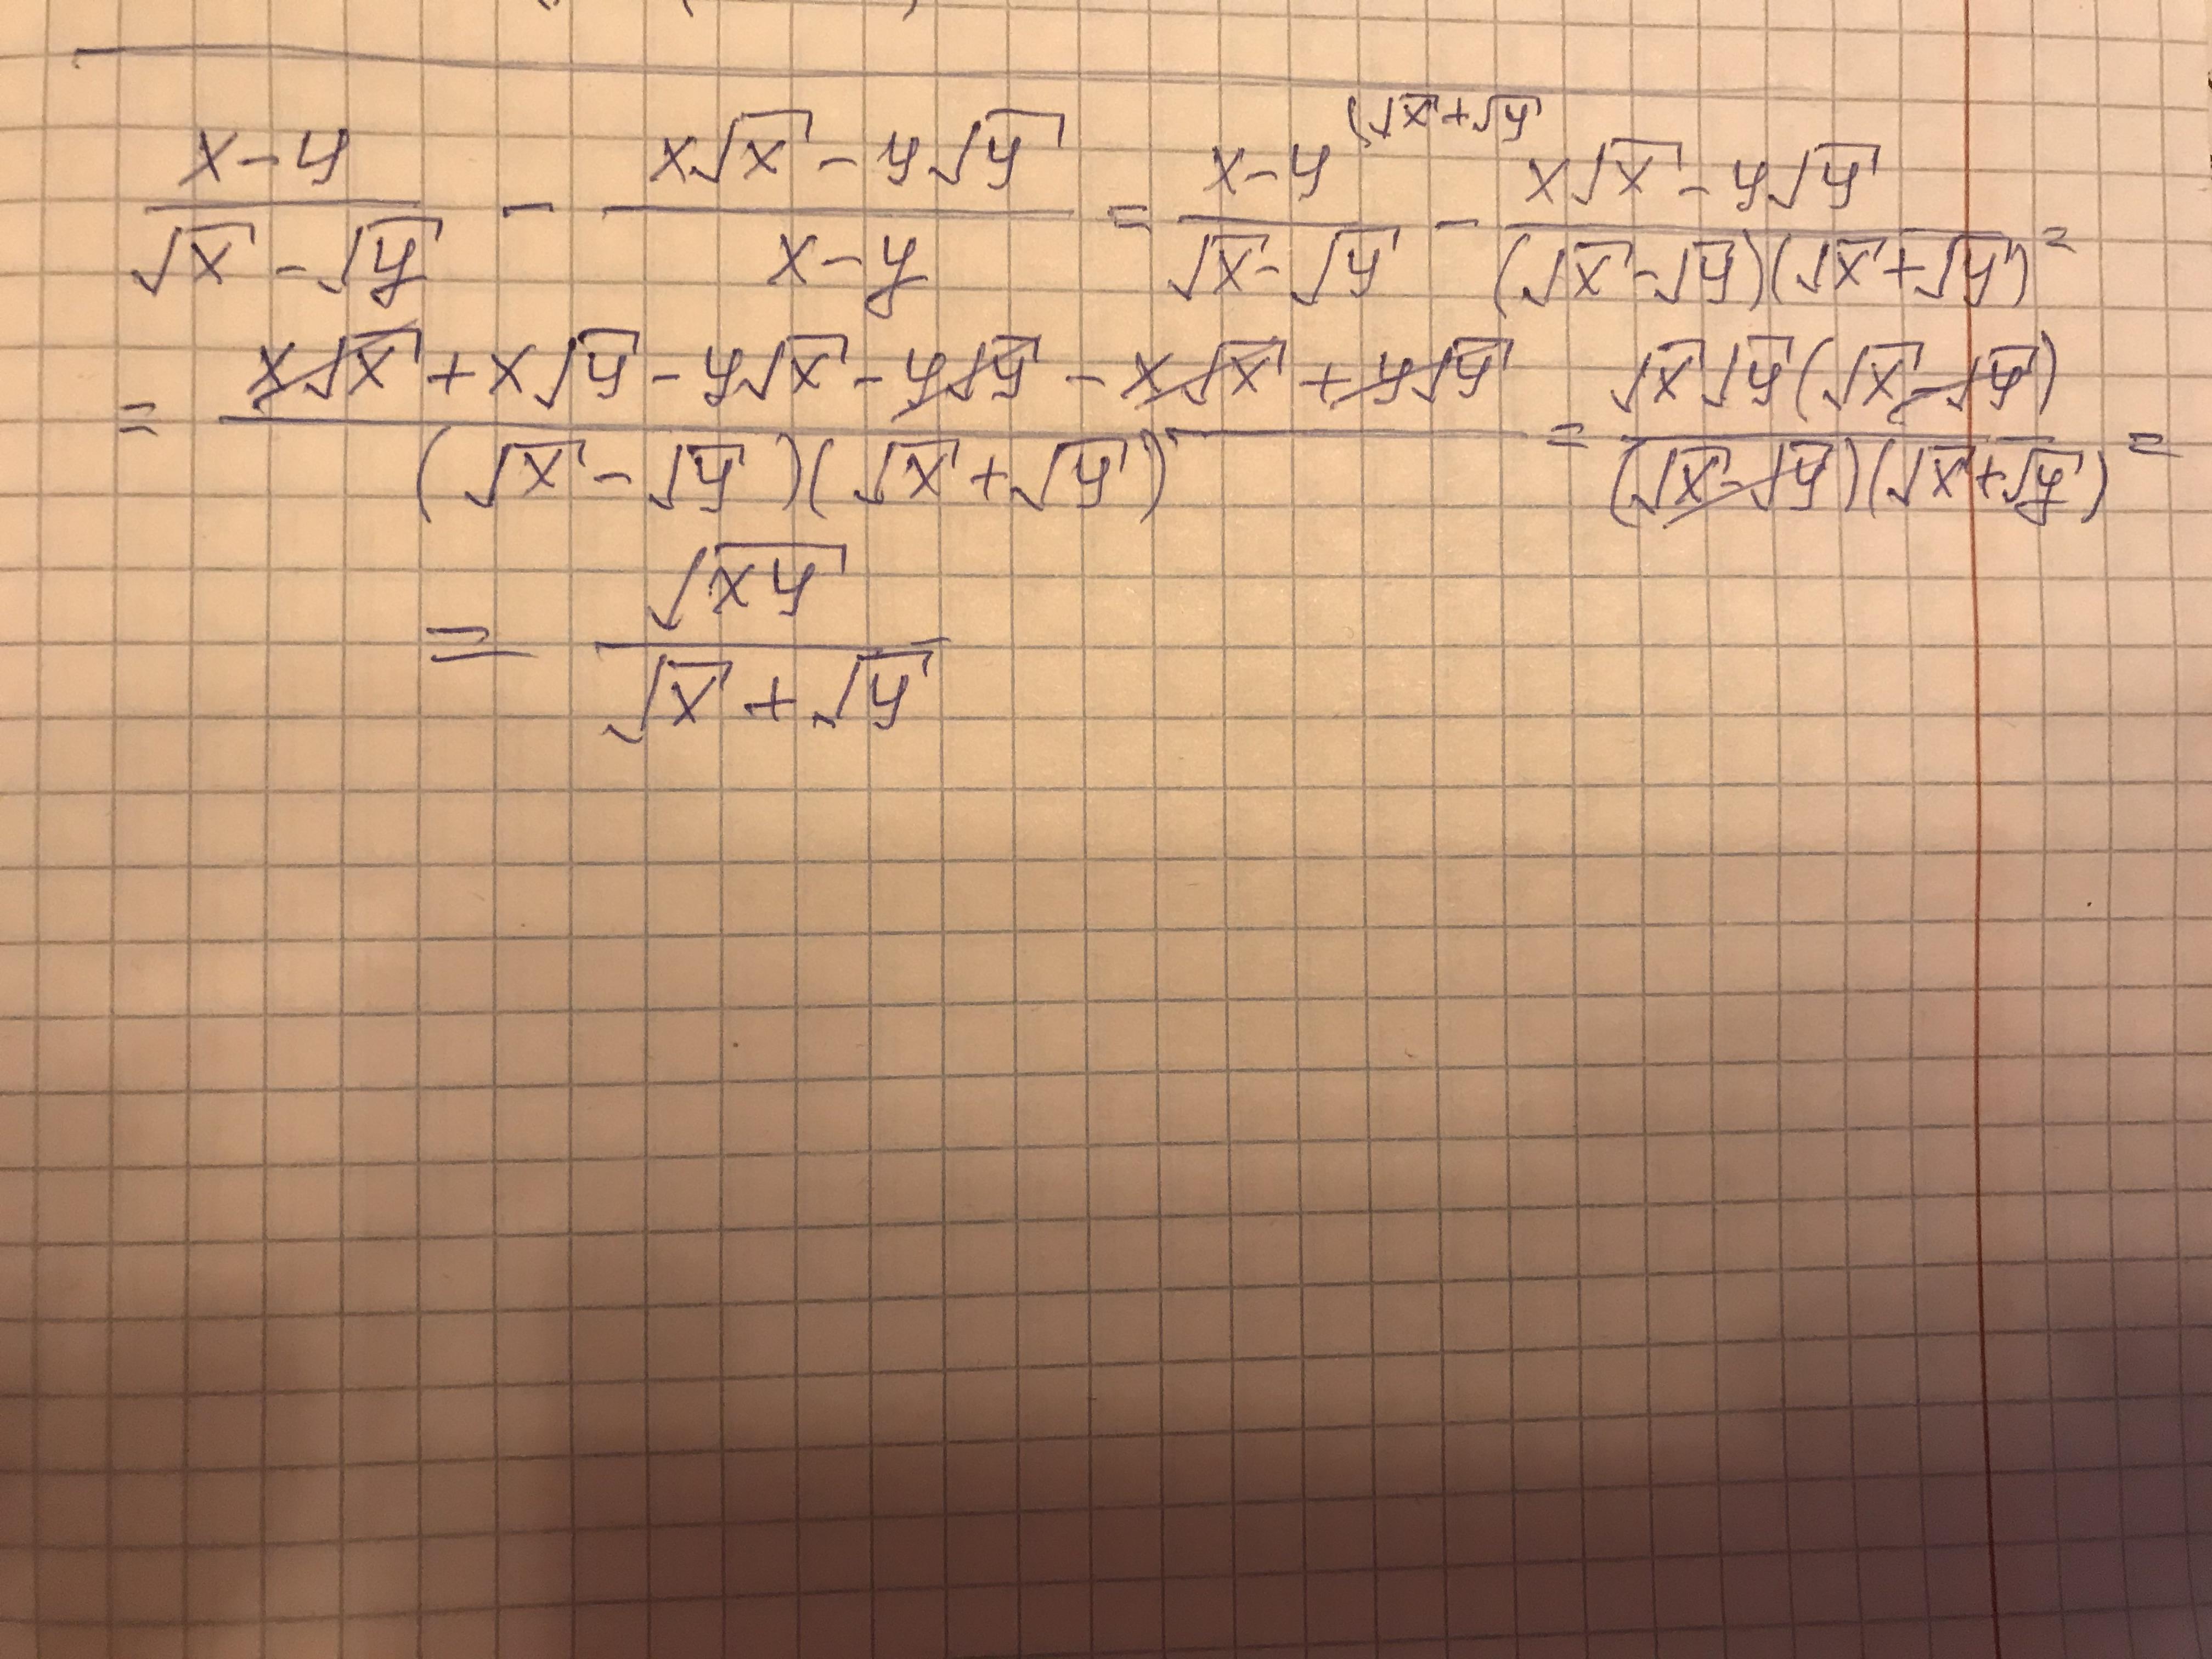 (x-y)/(√x - √y) - (x√x - y√y)/(x-y) = (x-y)^(√x+√y/(√x-√y) - (x√x - y√y)/((√x-√y)(√x+√y)) =
= (x√x + x√y - y√x - y√y - x√x + y√y)/((√x - √y)(√x + √y)) = (√x√y(√x-√y))/((√x-√y)(√x+√y)) =
= √(xy)/(√x + √y)